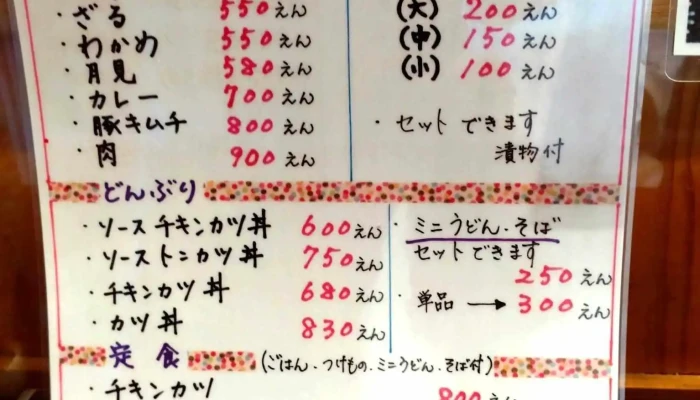 ・ざる 550えん
・わかめ 550えん
・月見 580えん
・カレー 700えん
・豚キムチ 800えん
・肉 900えん
(大) 200えん
(中) 150えん
(小) 100えん
・セットできます
漬物付
どんぶり
・ソースチキンカツ丼 600えん
・ソーストンカツ丼 750えん
・チキンカツ丼 680えん
・カツ丼 830えん
・ミニうどん・そば
セットできます
250えん
・単品→300えん
定食 (ごはん・つけもの・ミニうどん・そば付)
・チキンカツ 800えん